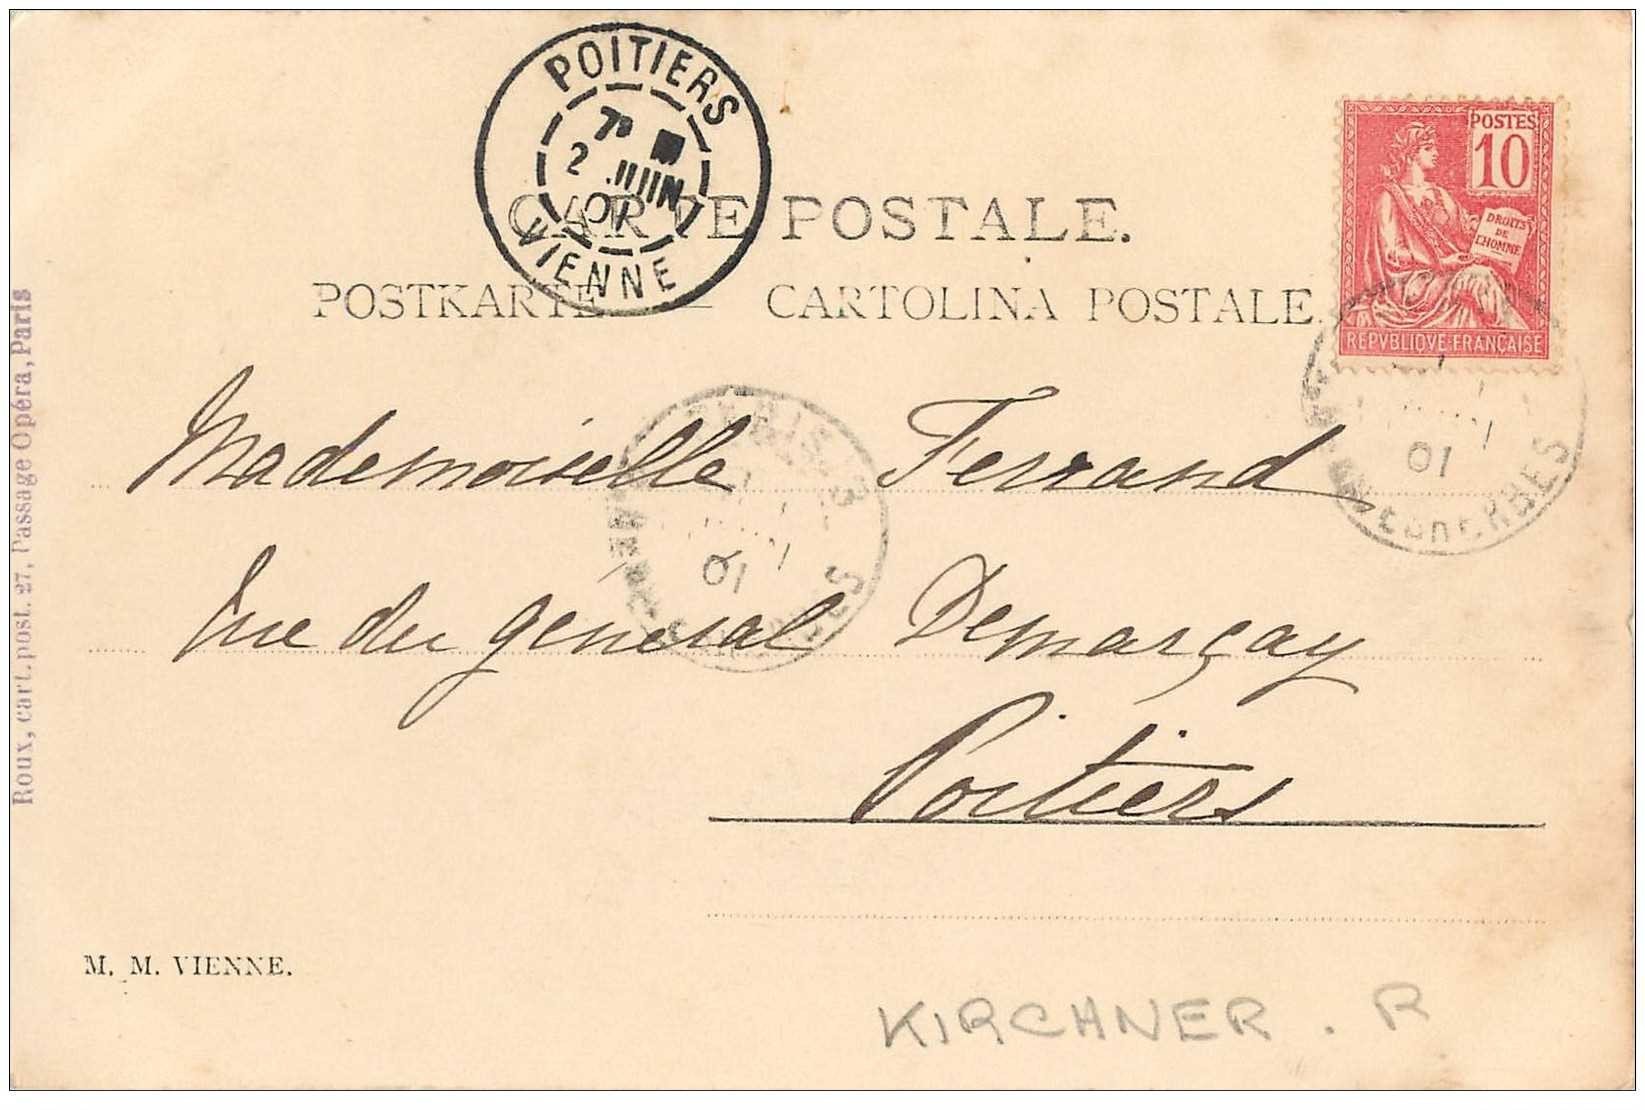 POITIERS
2 JUIN
01
VIENNE
POSTES
10
DROITS
DE
L'HOMME
REPVBLIQVE FRANÇAISE
CARTE POSTALE.
POSTKARTE — CARTOLINA POSTALE.
Mademoiselle Ferrand
rue du général Demarçay
Poitiers
01
01
Roux, cart. post. 27, Passage Opéra, Paris
M. M. VIENNE.
KIRCHNER. R